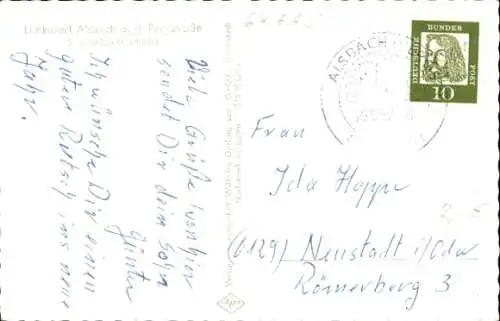 Luftkurort Alsbach a. d. Bergstraße
Viele Grüße von hier
sendet Dir dein Sohn
Günter
Ich wünsche Dir einen
guten Rutsch ins neue
Jahr.
ALSBACH
DEUTSCHE BUNDES POST
10
Frau
Ida Hoppe
(6129) Neustadt i/Odw
Römerberg 3